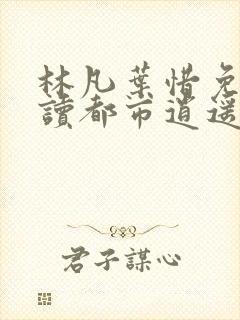 林凡葉惜免
讀都市逍遥
君子謀心